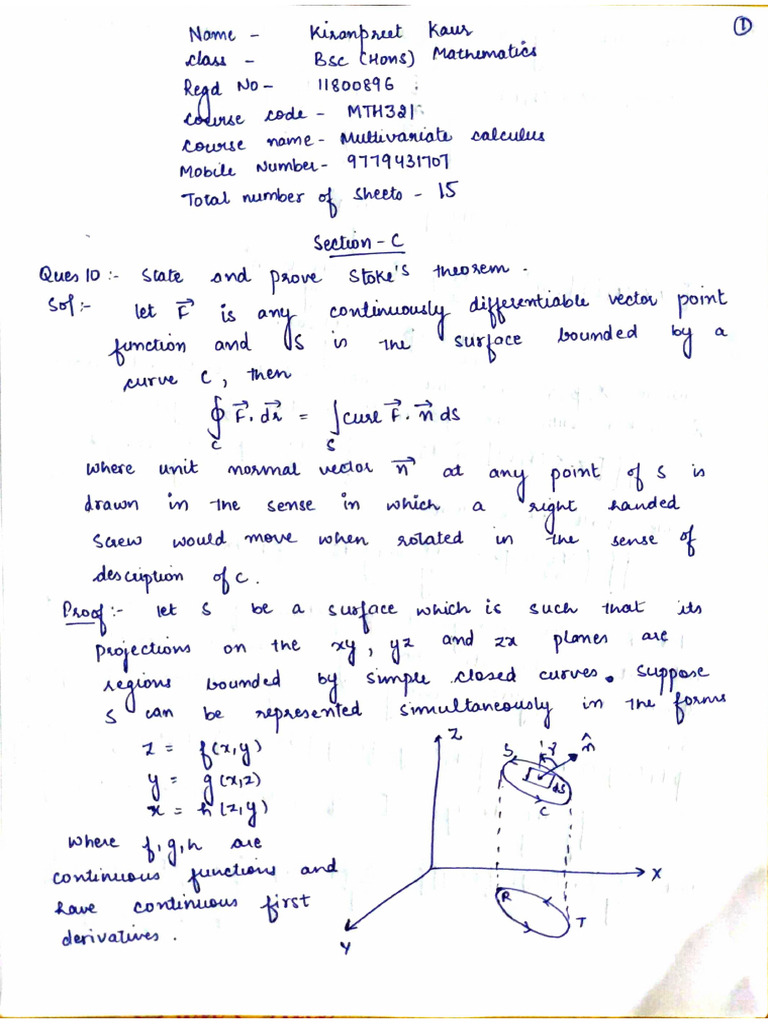 ①
Name - Kiranpreet Kaur
class - Bsc (Hons) Mathematics
Regd No - 11800896
course code - MTH321
course name - Multivariate calculus
Mobile Number - 9779431707
Total number of sheets - 15
Section - C
Ques 10 :- State and prove Stoke's theorem.
Sol :- let F⃗ is any continuously differentiable vector point
function and S is the surface bounded by a
curve C, then
∮_C F⃗. dr⃗ = ∫_S cure F⃗. n⃗ ds
where unit normal vector n⃗ at any point of S is
drawn in the sense in which a right handed
screw would move when rotated in the sense of
description of C.
Proof :- let S be a surface which is such that its
projections on the xy, yz and zx planes are
regions bounded by simple closed curves. Suppose
S can be represented simultaneously in the forms
z = f(x,y)
y = g(x,z)
x = h(z,y)
where f,g,h are
continuous functions and
have continuous first
derivatives.
Z
S
γ
n̂
ds
C
X
R
T
Y